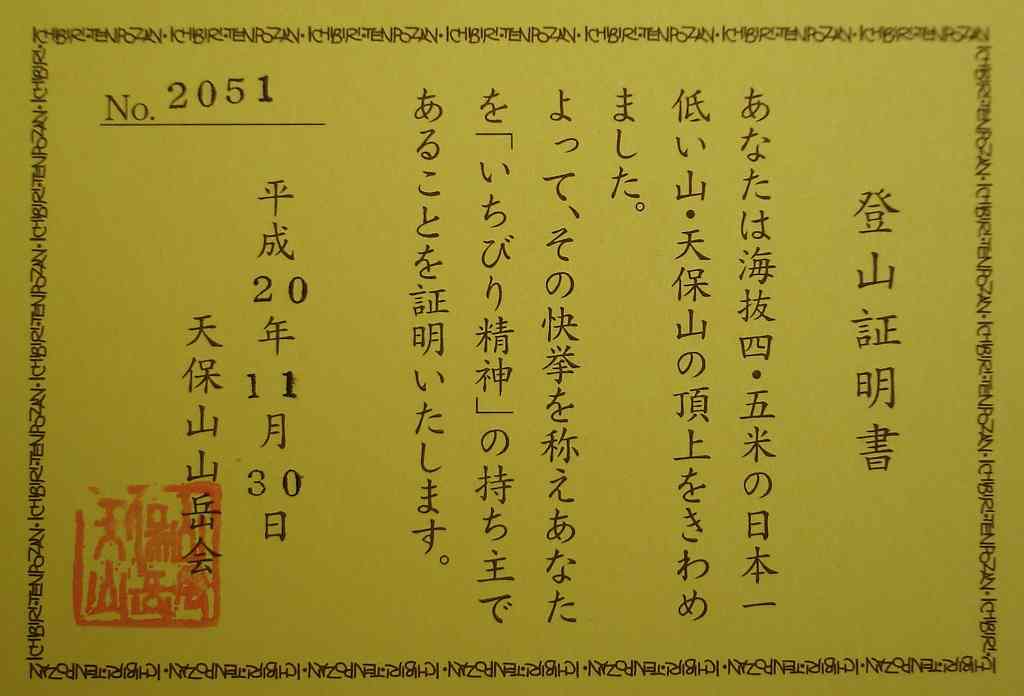 登山証明書
あなたは海抜四・五米の日本一
低い山・天保山の頂上をきわめ
ました。
よって、その快挙を称えあなた
を「いちびり精神」の持ち主で
あることを証明いたします。
No. 2051
平成20年11月30日
天保山山岳会
ICHIBIRI・TENPOZAN・ICHIBIRI・TENPOZAN・ICHIBIRI・TENPOZAN・ICHIBIRI・TENPOZAN・ICHIBIRI・TENPOZAN・ICHIBIRI・TENPOZAN・ICHIBIRI・TENPOZAN